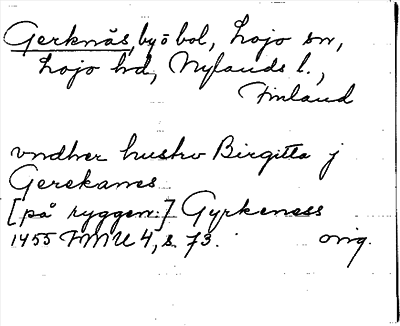 Gerknäs, by o bol, Lojo sn,
Lojo hd, Nylands l.,
Finland
vndher husho Birgitta j
Gerekanes
[på ryggen:] Gyrkeness
1455 FMU 4, s. 73. orig.